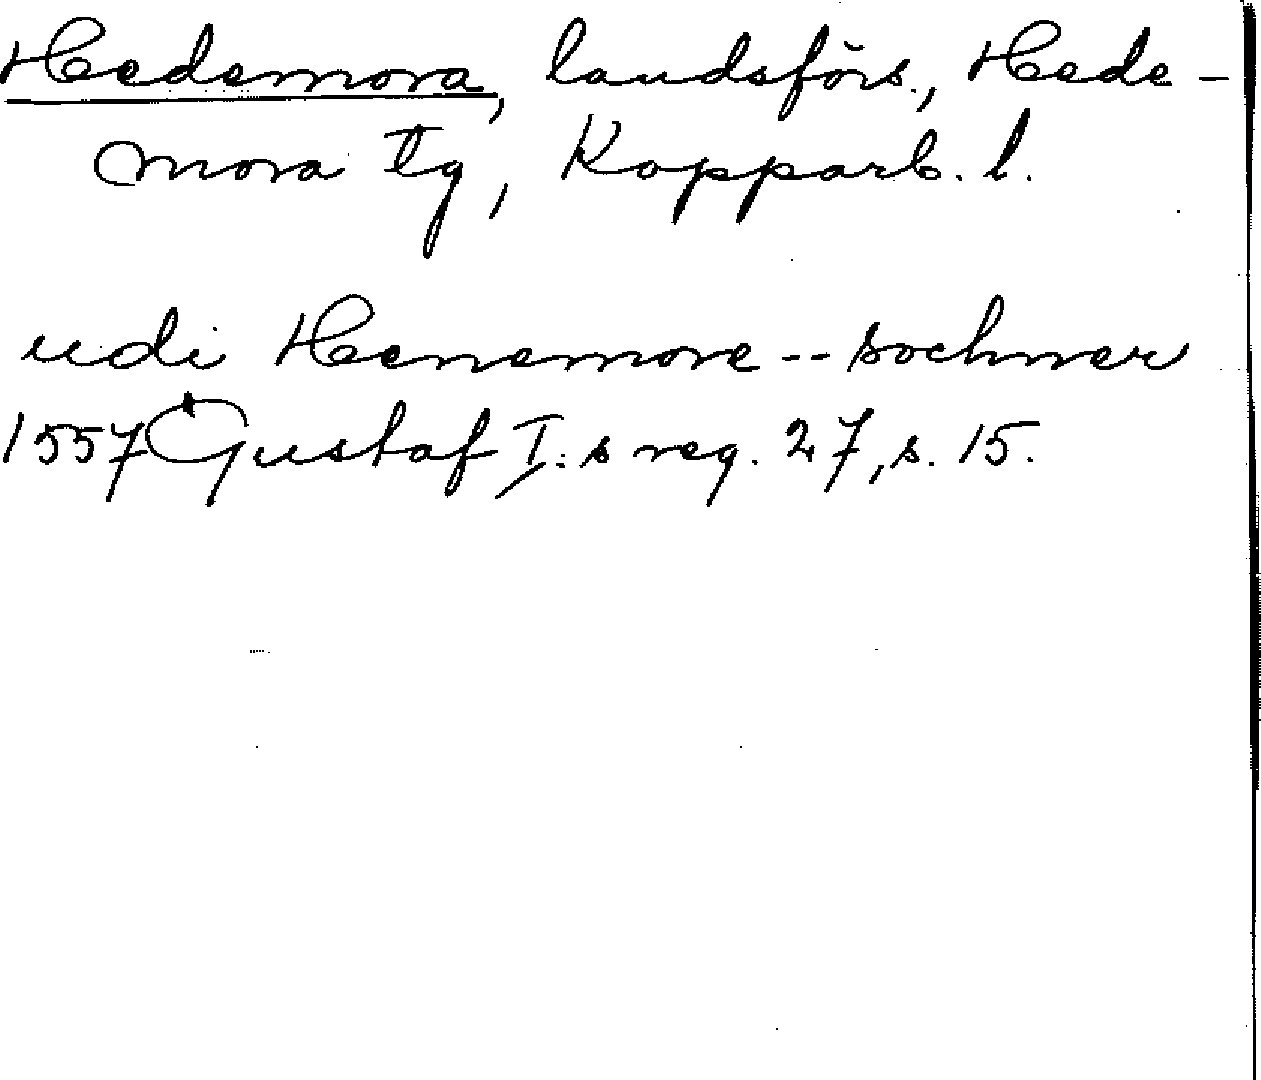 Hedemora, landsförs., Hede-
mora tg, Kopparb. l.
udi Henemore -- sochner
1557 Gustaf I:s reg. 27, s. 15.